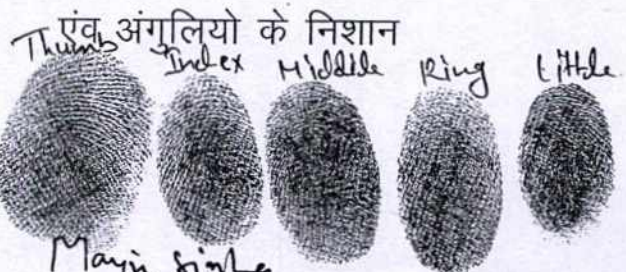 एंव अंगुलियो के निशान
Thumb Index Middile Ring Little